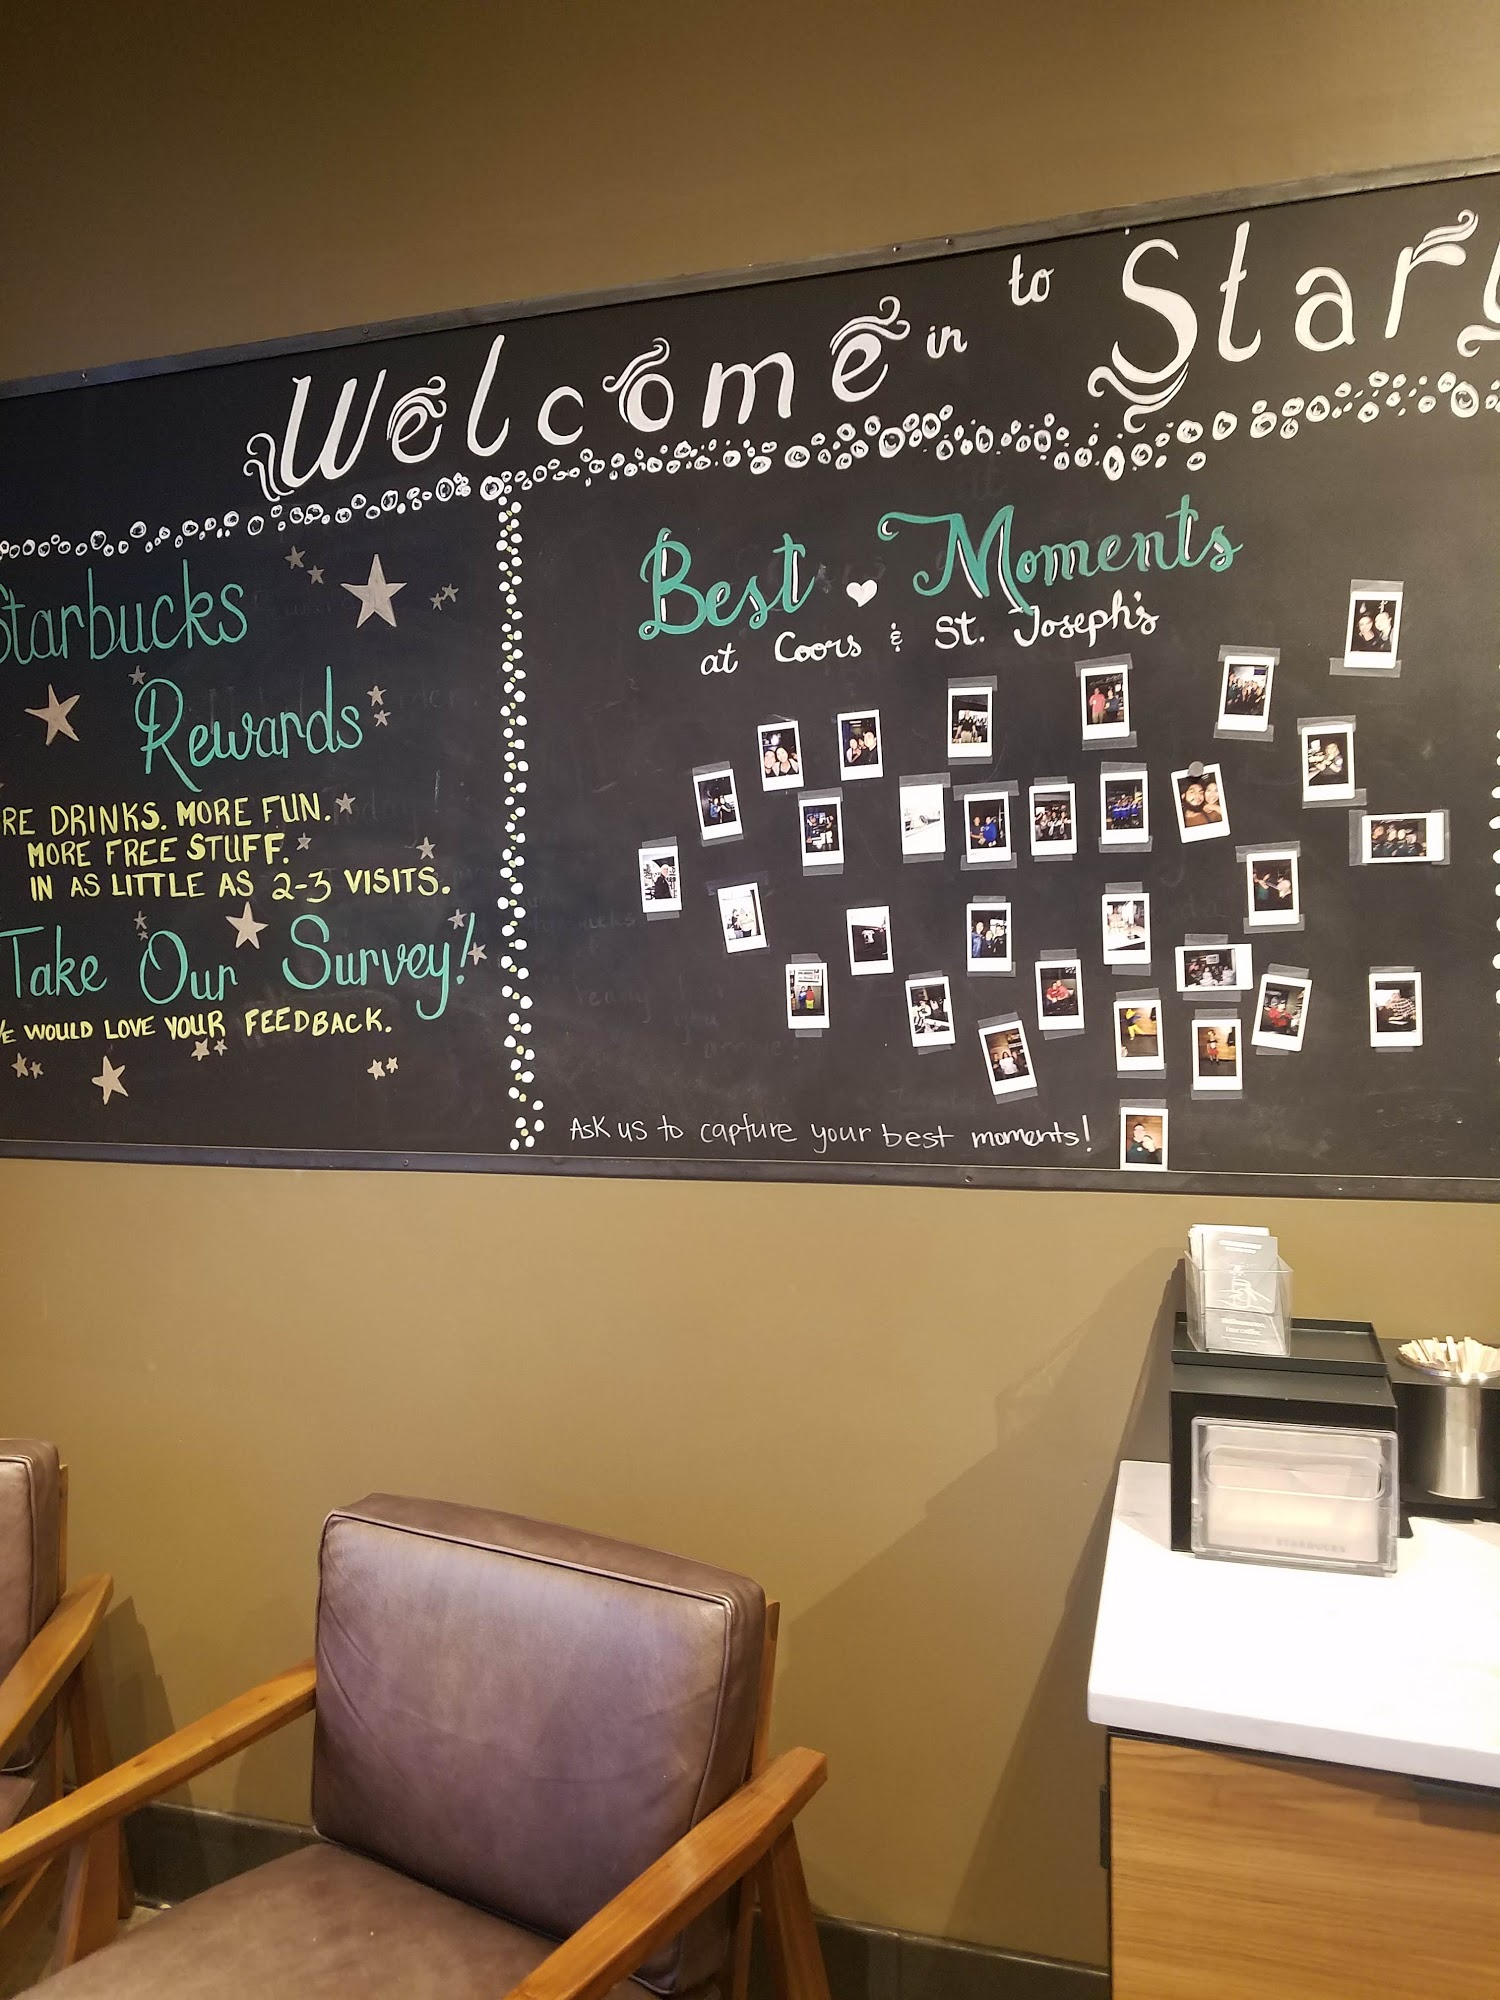 Welcome in to Star
Starbucks
Rewards
RE DRINKS. MORE FUN.
MORE FREE STUFF.
IN AS LITTLE AS 2-3 VISITS.
Take Our Survey!
WE WOULD LOVE YOUR FEEDBACK.
Best Moments
at Coors & St. Joseph's
Ask us to capture your best moments!
STARBUCKS